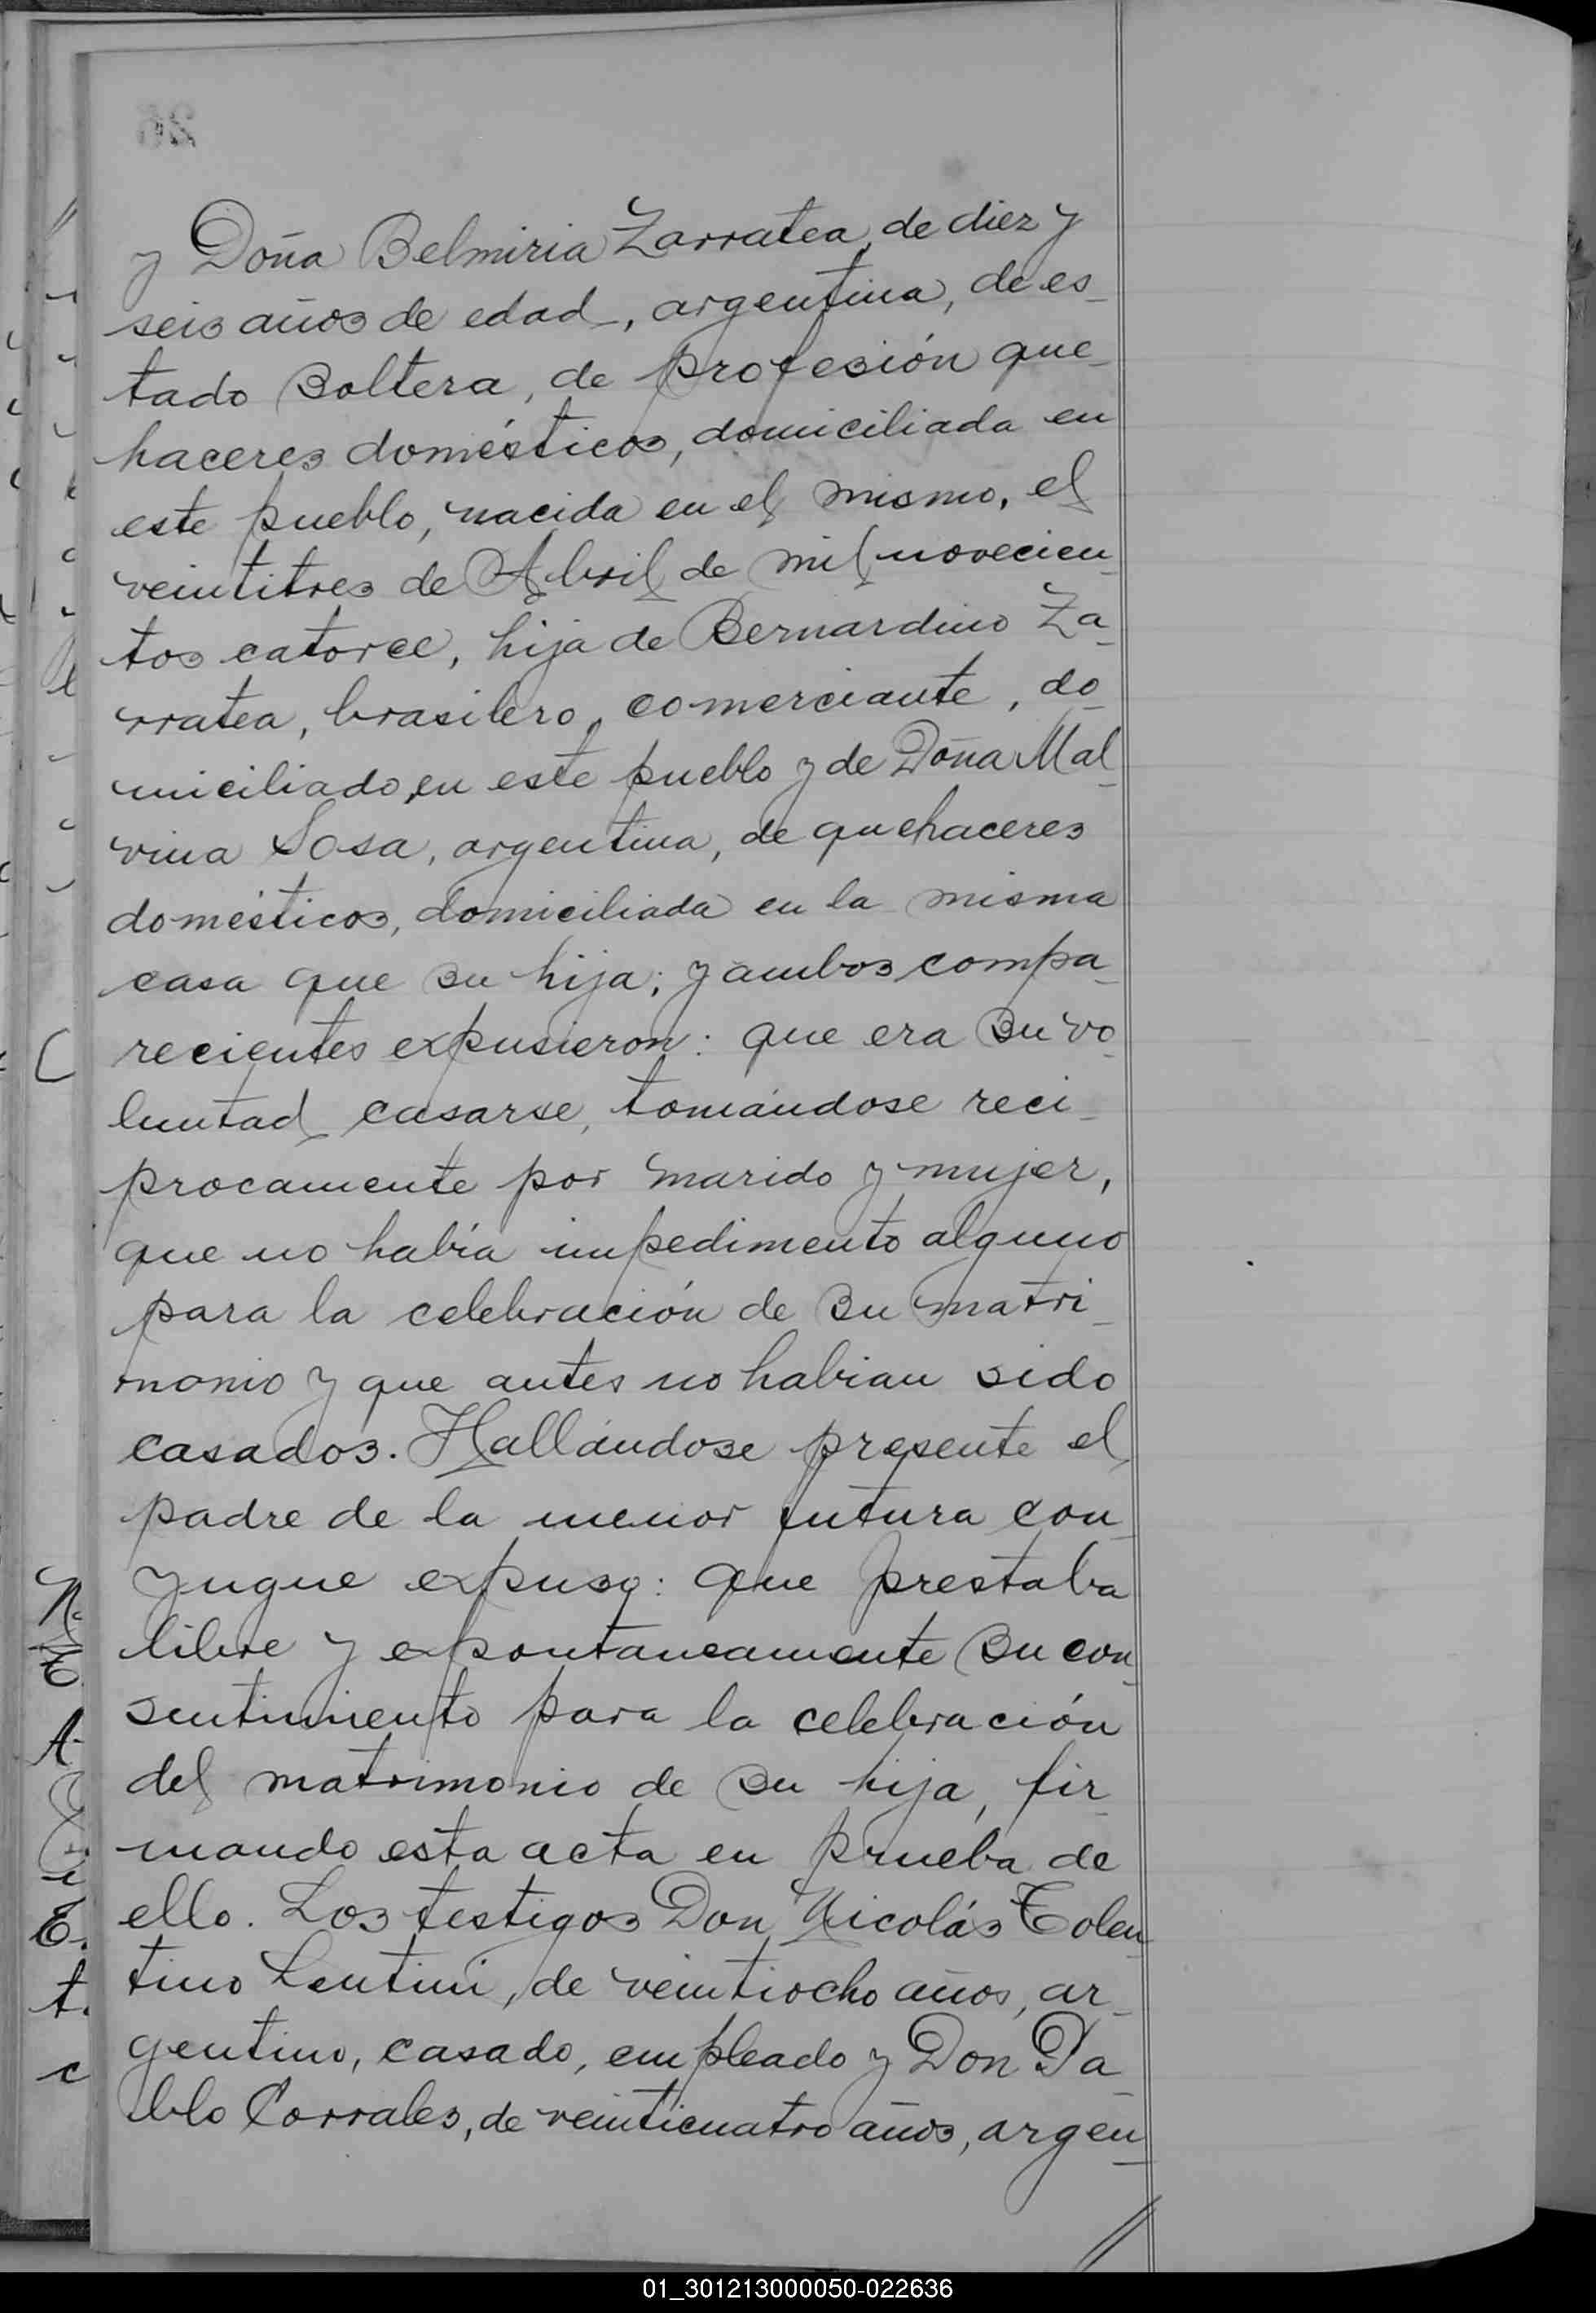 26
y Doña Belmiria Zarratea, de diez y
seis años de edad, argentina, de es-
tado soltera, de profesión que-
haceres domésticos, domiciliada en
este pueblo, nacida en el mismo, el
veintitres de Abril de mil novecien-
tos catorce, hija de Bernardino Za-
rratea, brasilero, comerciante, do-
miciliado en este pueblo y de Doña Mal-
vina Sosa, argentina, de quehaceres
domésticos, domiciliada en la misma
casa que su hija; y ambos compa-
recientes expusieron: que era su vo-
luntad casarse, tomándose reci-
procamente por marido y mujer,
que no había impedimento alguno
para la celebración de su matri-
monio y que antes no habian sido
casados. Hallándose presente el
padre de la menor futura con-
yugue expuso: que prestaba
libre y expontaneamente su con-
sentimiento para la celebración
del matrimonio de su hija, fir-
mando esta acta en prueba de
ello. Los testigos Don Nicolás Tolen-
tino Lentini, de veintiocho años, ar-
gentino, casado, empleado y Don Pa-
blo Corrales, de veinticuatro años, argen-
//
01_301213000050-022636